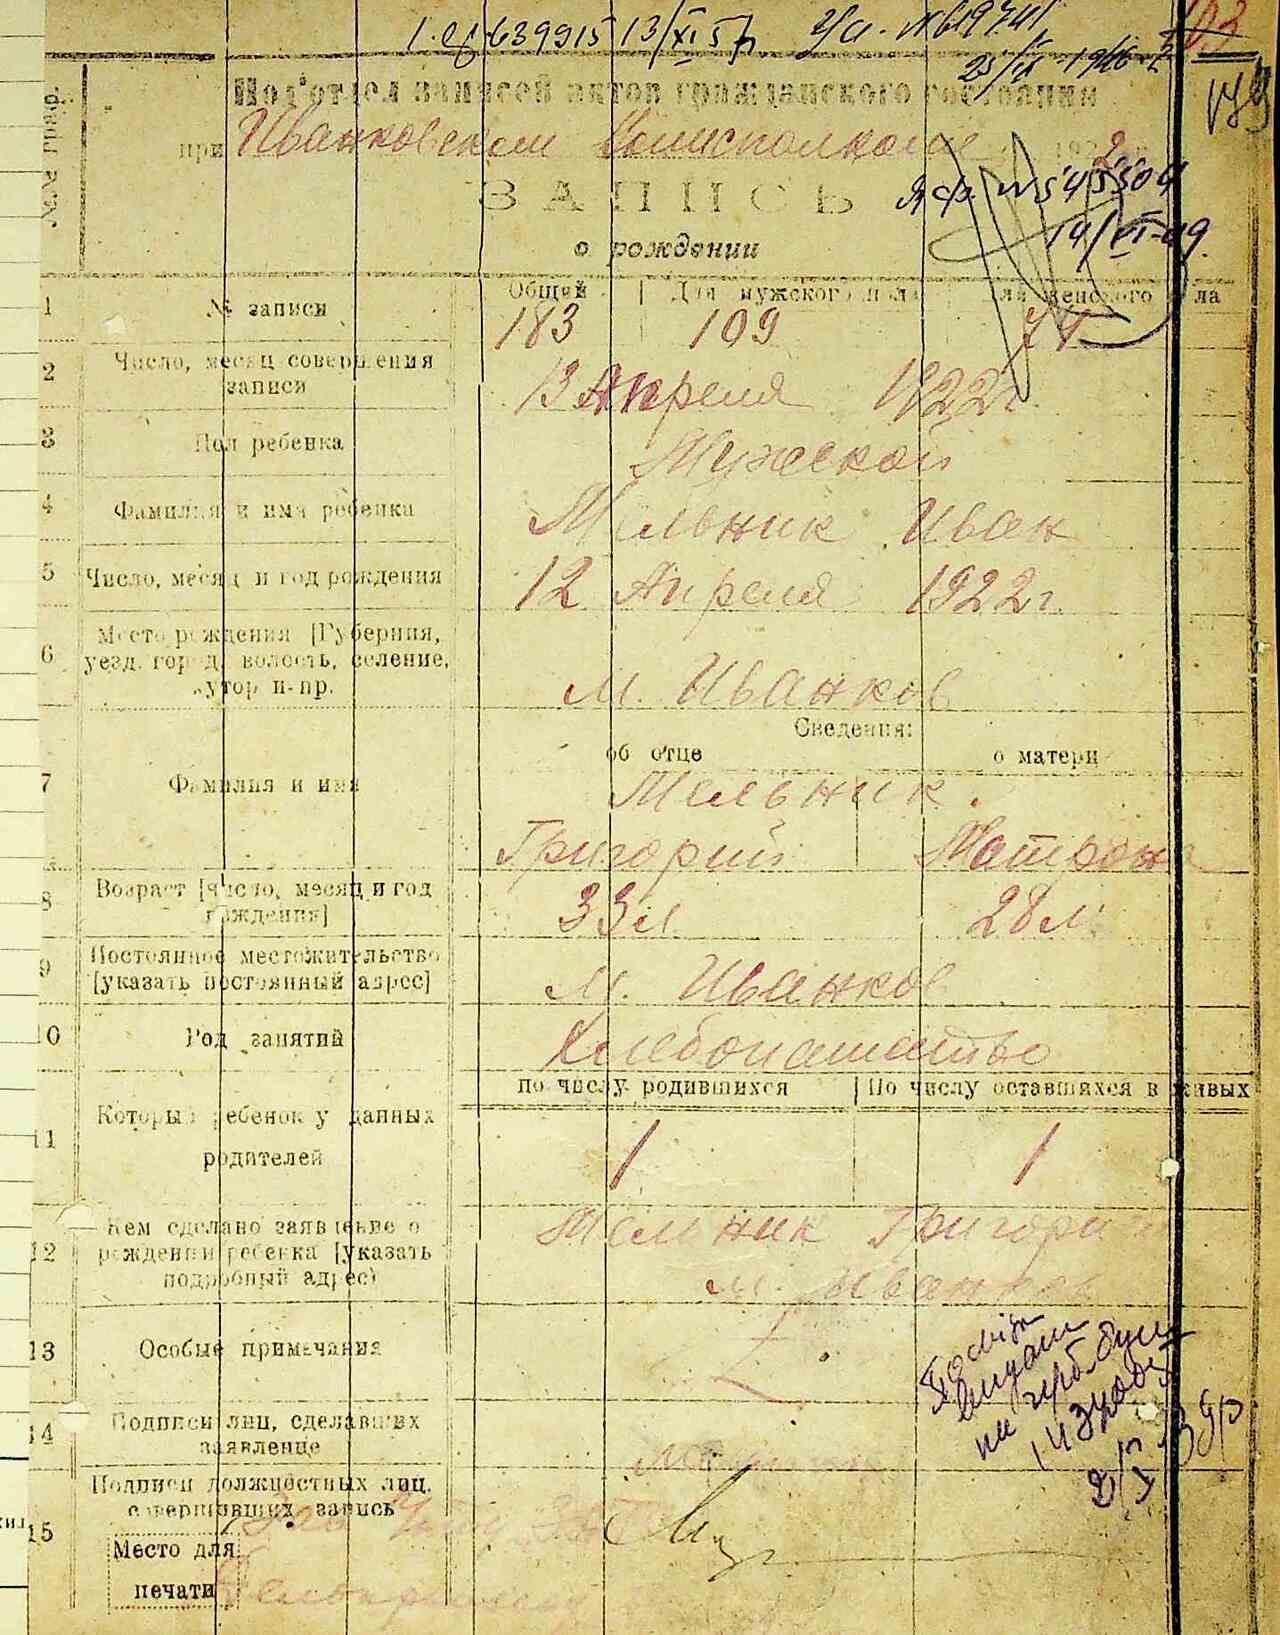 1.еј 639915 13/XI 5
25/IX 1946
103
Под'отдел записей актов гражданского состояния
при Иванковском Волисполкоме 192
ЗАПИСЬ
о рождении
№ 545504
14/VI-49.
№№ граф.
Общей Для мужского пола Для женского пола
1 № записи 183 109 74
2 Число, месяц совершения
записи 13 Апреля 1922 г.
3 Пол ребенка Мужской
4 Фамилия и имя ребенка Мельник Иван
5 Число, месяц и год рождения 12 Апреля 1922 г.
6 Место рождения [Губерния,
уезд, город, волость, селение,
хутор и пр. м. Иванков
Сведения:
об отце о матери
7 Фамилия и имя Мельник
Григорий Матрона
8 Возраст [число, месяц и год
рождения] 33 л 28 л.
9 Постоянное местожительство
[указать постоянный адрес] м. Иванков
10 Род занятий Хлебопашество
по числу родившихся По числу оставшихся в живых
11 Который ребенок у данных
родителей 1 1
12 Кем сделано заявление о
рождении ребенка [указать
подробный адрес) Мельник Григорий
м. Иванков
13 Особые примечания
14 Подписи лиц, сделавших
заявление
15 Подписи должностных лиц,
совершивших запись
Место для
печати